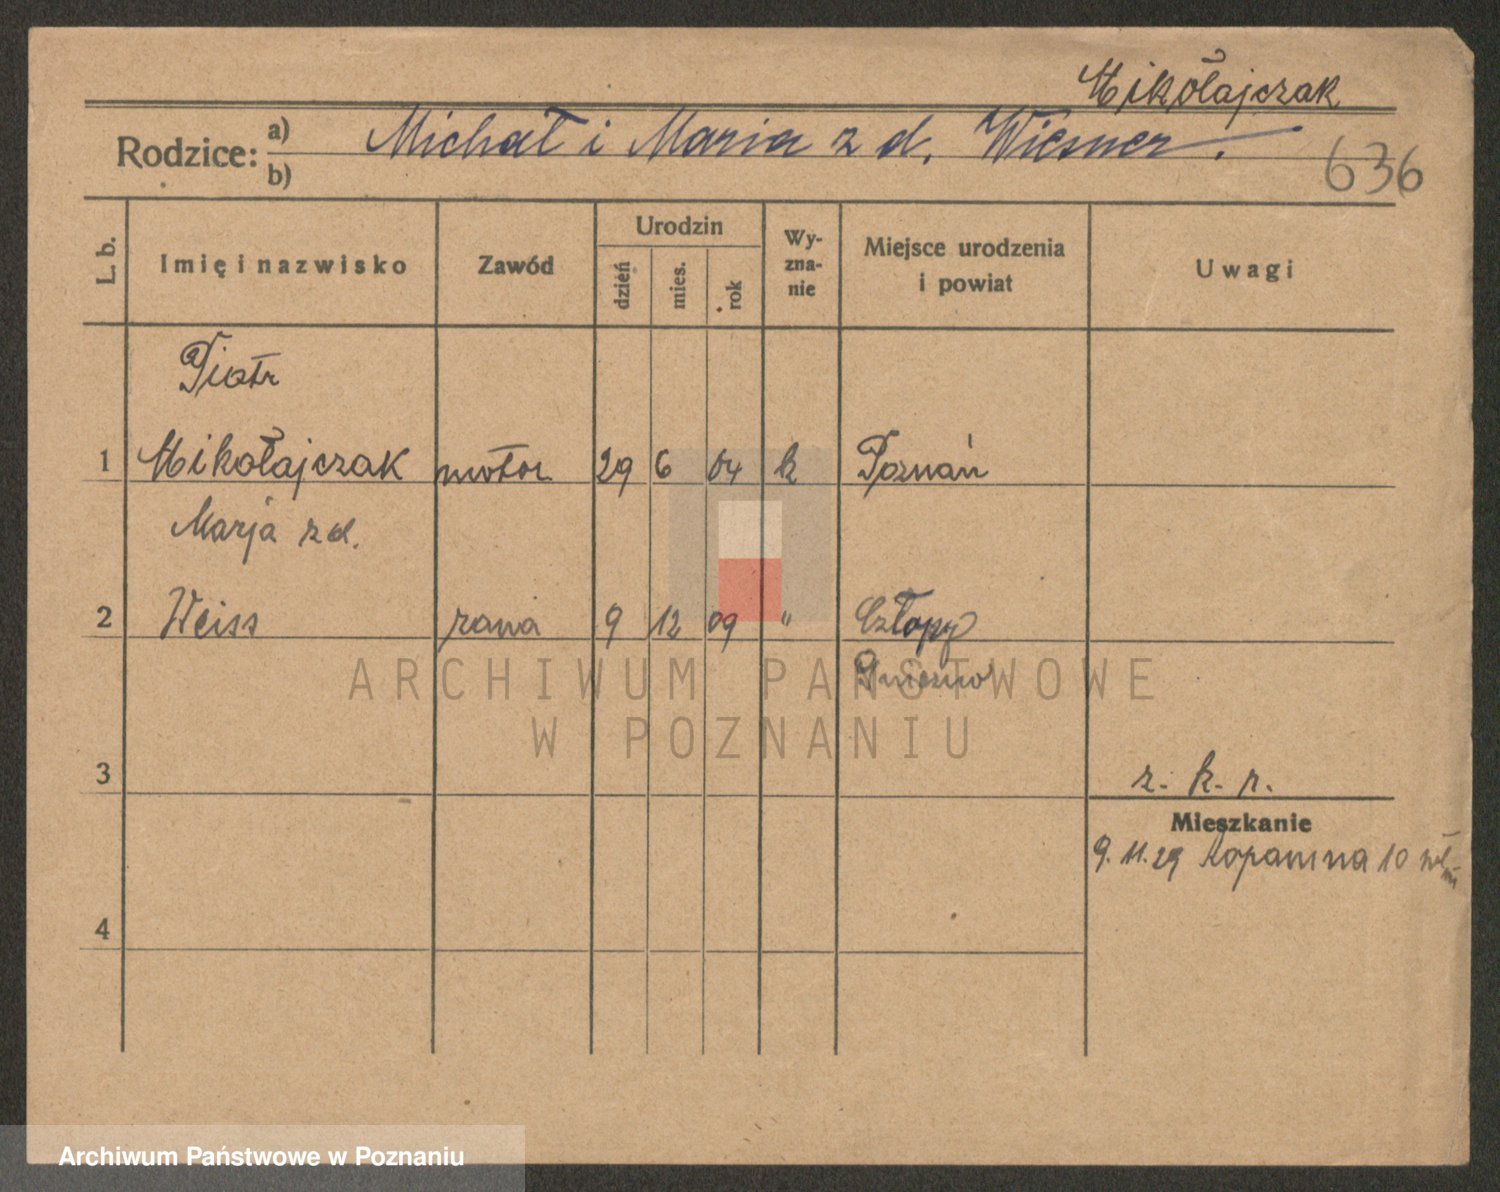 Mikołajczak
Rodzice: a) Michał i Maria z d. Wiesner.
b)
636
L. b.
Imię i nazwisko
Zawód
Urodzin
dzień
mies.
rok
Wy-
zna-
nie
Miejsce urodzenia
i powiat
Uwagi
Piotr
1 Mikołajczak motor 29 6 04 k Poznań
Marja z d.
2 Weiss żona 9 12 09 " Człopy
Gniezno
ARCHIWUM PAŃSTWOWE
W POZNANIU
3
z. k. r.
Mieszkanie
9. 11. 29 Kopanina 10
4
Archiwum Państwowe w Poznaniu